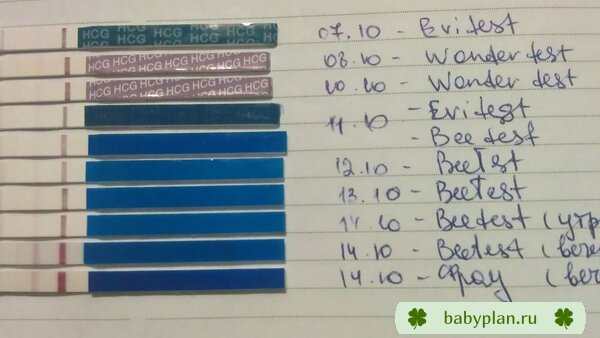 HCG HCG HCG HCG HCG
07.10 - Evitest
HCG HCG HCG HCG HCG HCG
08.10 - Wonder test
HCG HCG HCG HCG HCG HCG
10.10 - Wonder test
11.10 - Evitest
- Beetest
12.10 - BeeTest
13.10 - BeeTest
14.10 - Beetest (утр
14.10 - Beetest (вече
14.10 - Фрау (веч
babyplan.ru